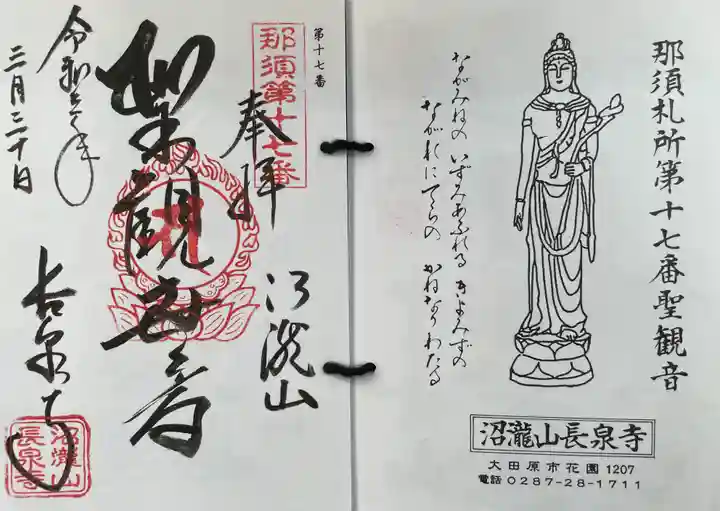 那須札所第十七番聖観音
ながみねの いずみあふれる きよみずの
ながれにてらの かねなりわたる
沼瀧山長泉寺
大田原市花園 1207
電話 0287-28-1711
第十七番
那須第十七番
奉拝
沼瀧山
聖観世音
長泉寺
沼瀧山
長泉寺
三月三十日